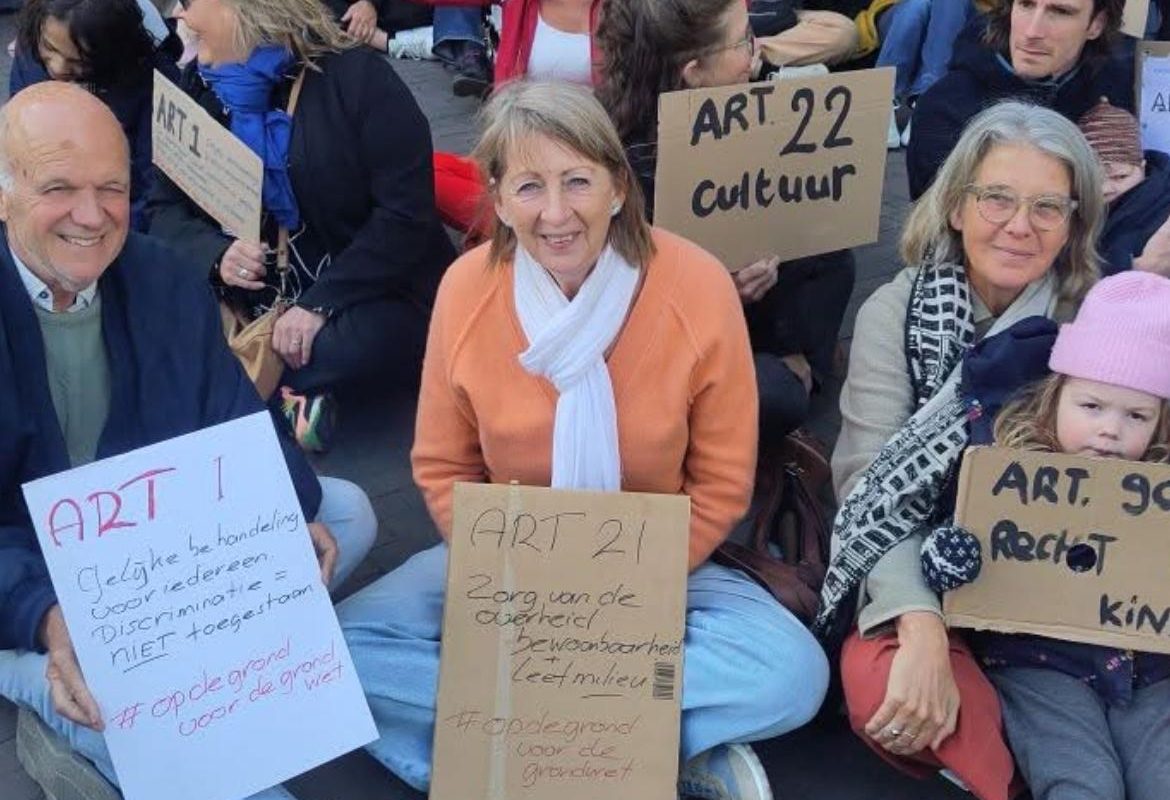 ART 1
ART. 22
cultuur
ART 1
Gelijke behandeling
voor iedereen.
Discriminatie =
NIET toegestaan
#opdegrond
voor de grond
wet
ART 21
Zorg van de
overheid
bewoonbaarheid
+
leefmilieu
#opdegrond
voor de
grondwet
ART. 90
Recht
KIN